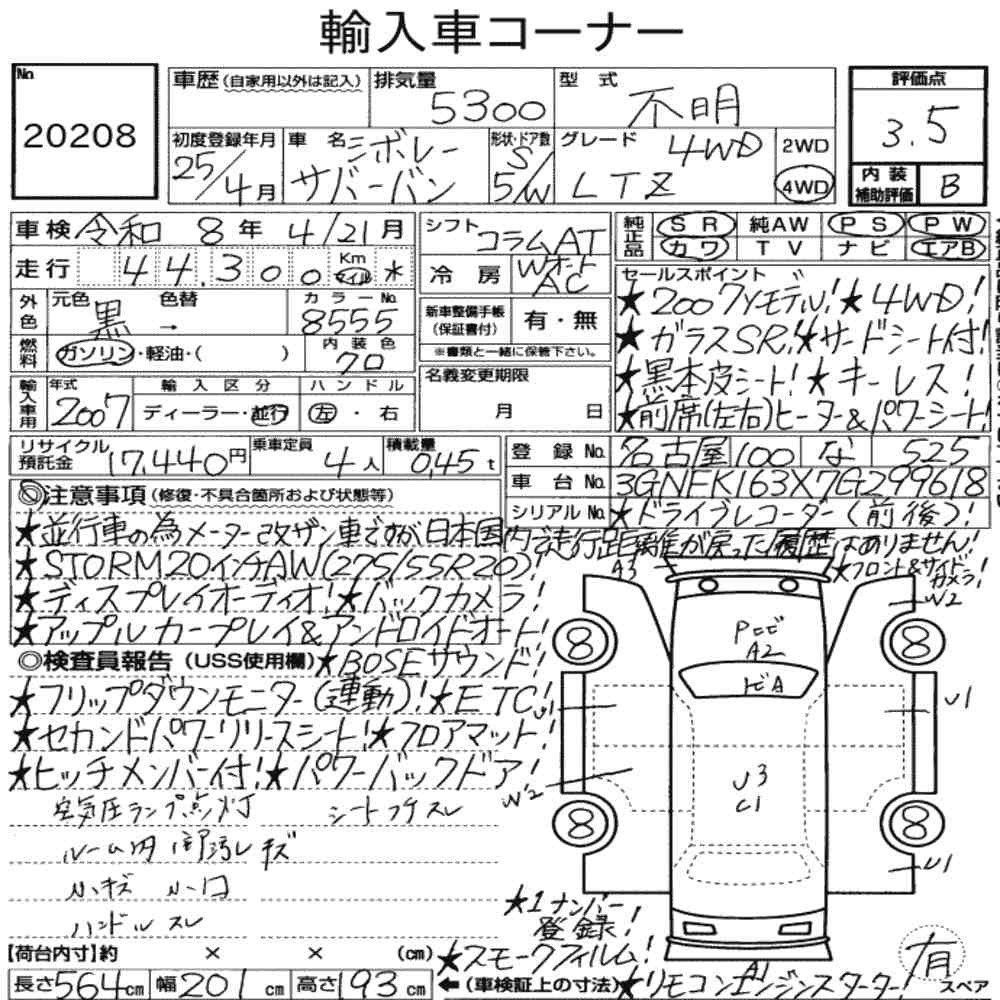 輸入車コーナー
No. 20208
車歴 (自家用以外は記入)
排気量 5300
型式 不明
評価点 3.5
初度登録年月 25/4月
車名 シボレー サバーバン
形状・ドア数 S/5/W
グレード 4WD LTZ
2WD 4WD
内装補助評価 B
車検 令和 8年 4/21月
シフト コラムAT
純正品 SR 純AW PS PW
カワ TV ナビ エアB
走行 44,300 Km マイル *
冷房 WオートAC
セールスポイント
★2007Yモデル!★4WD!
外色 元色 黒 → 色替
カラーNo. 8555
新車整備手帳(保証書付) 有・無
★ガラスSR!★サードシート付!
燃料 ガソリン・軽油・( )
内装色 クロ
※書類と一緒に保管下さい。
★黒本皮シート!★キーレス!
輸入車用 年式 2007
輸入区分 ディーラー・並行
ハンドル 左・右
名義変更期限 月 日
★前席(左右)ヒーター&パワーシート!
リサイクル預託金 17,440円
乗車定員 4人
積載量 0.45t
登録No. 名古屋 100 な 525
車台No. 3GNFK163X7G299618
◎注意事項 (修復・不具合箇所および状態等)
シリアルNo. ★ドライブレコーダー(前後)!
★並行車の為メーター改ザン車ですが日本国内で走行距離が戻った履歴はありません!
★STORM20インチAW(275/55R20)!
A3 ★フロント&サイドカメラ!
★ディスプレイオーディオ!★バックカメラ!
W2
★アップルカープレイ&アンドロイドオート!
8 PとビA2 8
◎検査員報告 (USS使用欄) ★BOSEサウンド!
トビA
★フリップダウンモニター(連動)!★ETC!
U1 U1
★セカンドパワーリリースシート!★フロアマット!
★ヒッチメンバー付!★パワーバックドア!
W2 U3 C1
空気圧ランプ点灯 シートコゲスレ
8 8
ルーム内 汚レキズ
U1
小キズ 小凹
★1ナンバー登録!
ハンドルスレ
【荷台内寸】約 × × (cm)
★スモークフィルム!
有 スペア
長さ564cm 幅201cm 高さ193cm
←(車検証上の寸法) ★リモコンエンジンスターター!
A1